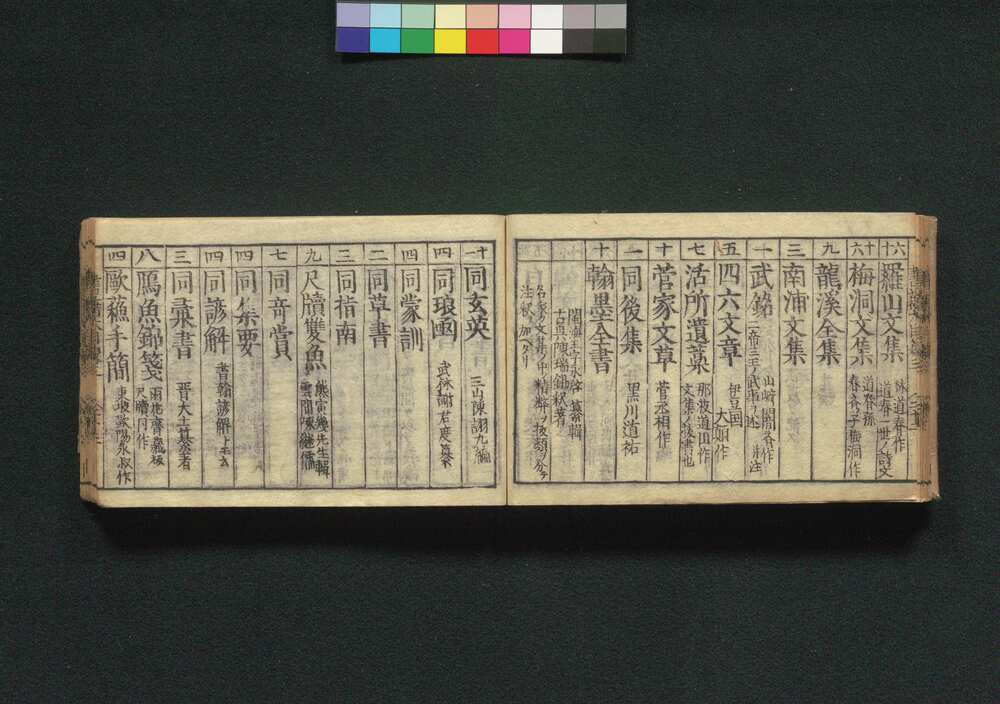 六十 羅山文集 林道春作 道春一世ノ詩文
十六 梅洞文集 道春孫 春斎子梅洞作
九 龍溪全集
三 南浦文集
一 武銘 山崎闇斎作 二帝三王ノ武事ヲ述 并注
五 四六文章 伊豆國 大顛作
七 活所遺藁 那波道円作 文集ノ後書也
十 菅家文章 菅丞相作
一 同後集 黒川道祐
十 翰墨全書
名家ノ文集ノ中精粋ヲ抜 類ヲ分テ
注釈ヲ加ヘタリ
十一 同玄英 三山陳翊九編
四 同琅函 武林謝君度纂
四 同蒙訓
二 同草書
三 同指南
九 尺牘雙魚 熊寅幾先生輯 雲間陳継儒
七 同奇賞
四 同集要
四 同諺解 書翰諺解上ニ云
三 同彙書 晋大士纂著
八 鴈魚錦箋 尺牘ト同作
四 歐蘓手簡 東坡歐陽永叔作